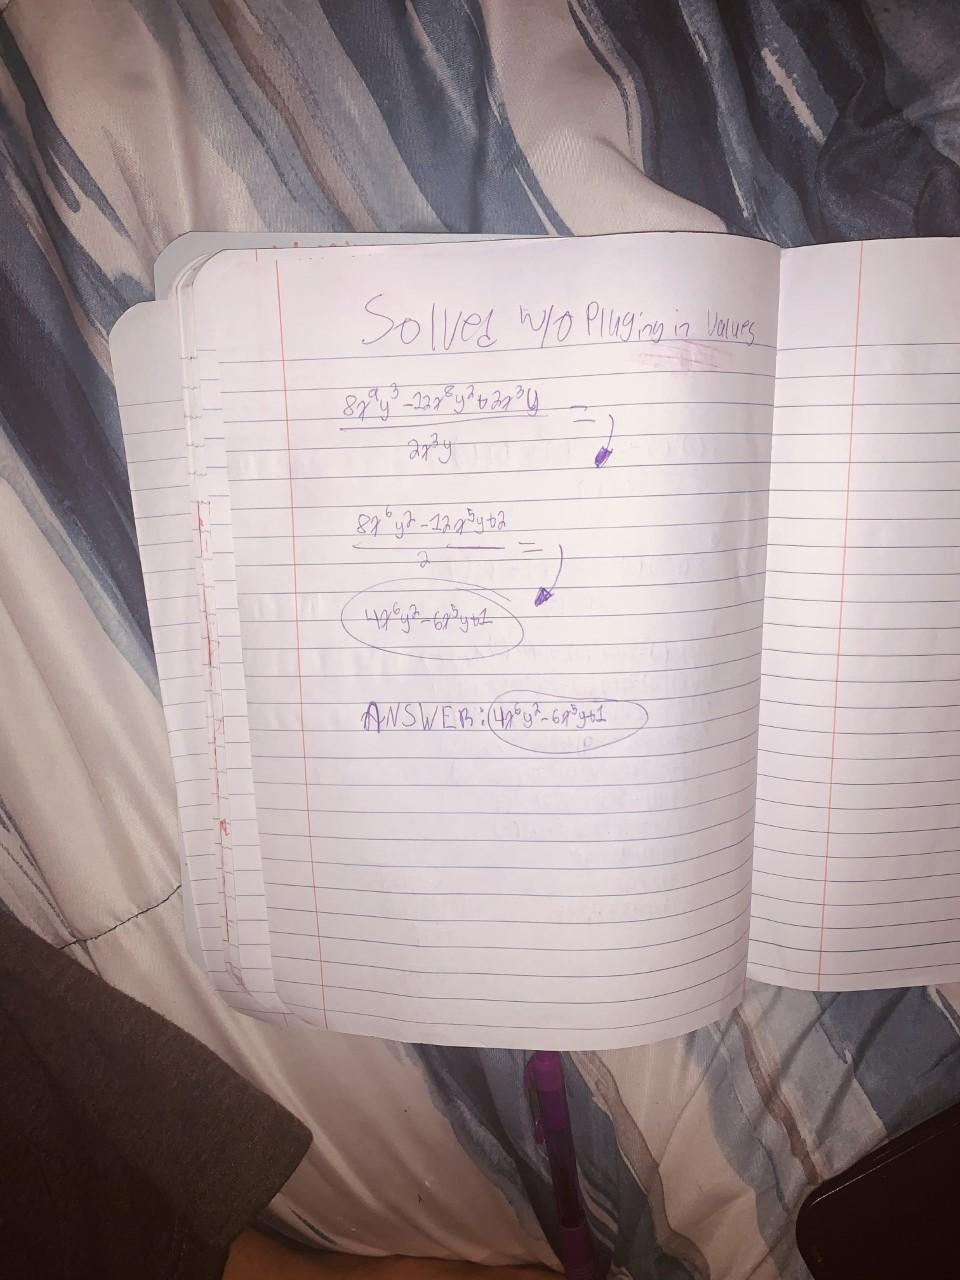 Solved w/o Pluging in Values
8x⁹y³-12x⁸y²+2x³y =
2x³y
8x⁶y²-12x⁵y+2 =
2
4x⁶y²-6x⁵y+1
ANSWER: 4x⁶y²-6x⁵y+1